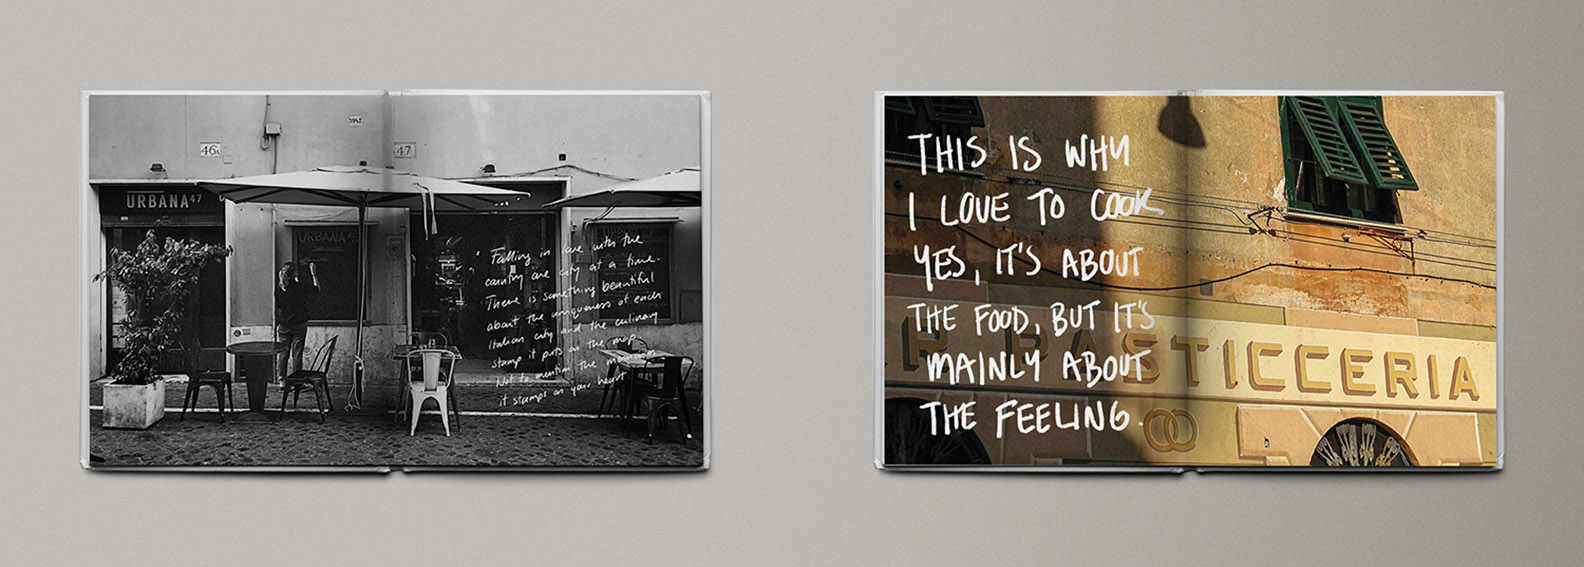 1952
46A
47
URBANA47
URBANA 47
" Falling in love with the
country one city at a time.
There is something beautiful
about the uniqueness of each
Italian city and the culinary
stamp it puts on the map.
Not to mention the memories
it stamps on your heart"
THIS IS WHY
I LOVE TO COOK
YES, IT'S ABOUT
THE FOOD, BUT IT'S
MAINLY ABOUT
THE FEELING.
R PASTICCERIA